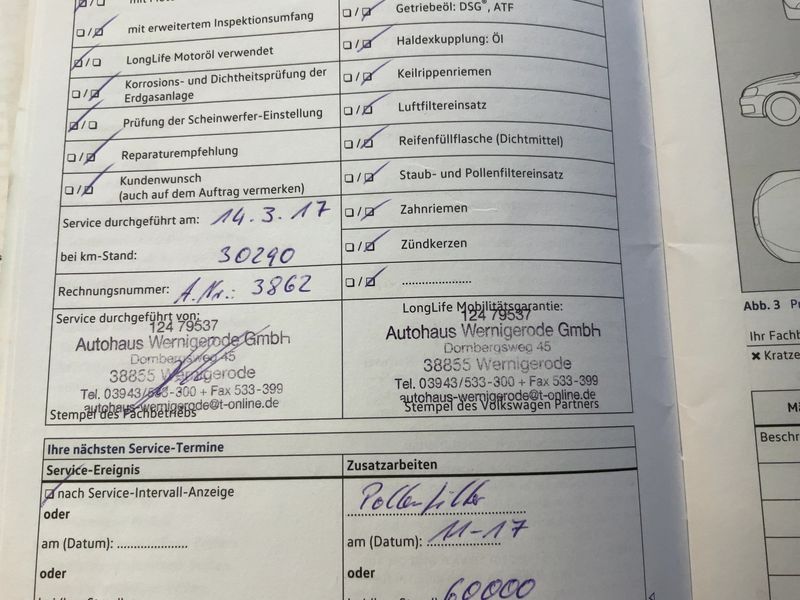 mit erweitertem Inspektionsumfang
LongLife Motoröl verwendet
Korrosions- und Dichtheitsprüfung der
Erdgasanlage
Prüfung der Scheinwerfer-Einstellung
Reparaturempfehlung
Kundenwunsch
(auch auf dem Auftrag vermerken)
Service durchgeführt am: 14.3.17
bei km-Stand: 30290
Rechnungsnummer: A.Nr.: 3862
Getriebeöl: DSG®, ATF
Haldexkupplung: Öl
Keilrippenriemen
Luftfiltereinsatz
Reifenfüllflasche (Dichtmittel)
Staub- und Pollenfiltereinsatz
Zahnriemen
Zündkerzen
Service durchgeführt von:
124 79537
Autohaus Wernigerode GmbH
Dornbergsweg 45
38855 Wernigerode
Tel. 03943/533-300 + Fax 533-399
autohaus-wernigerode@t-online.de
Stempel des Fachbetriebs
LongLife Mobilitätsgarantie:
124 79537
Autohaus Wernigerode GmbH
Dornbergsweg 45
38855 Wernigerode
Tel. 03943/533-300 + Fax 533-399
autohaus-wernigerode@t-online.de
Stempel des Volkswagen Partners
Ihre nächsten Service-Termine
Service-Ereignis
nach Service-Intervall-Anzeige
oder
am (Datum): ....................
oder
Zusatzarbeiten
Pollenfilter
am (Datum): 11-17
oder
60000
Abb. 3
Ihr Fachb
✖ Kratze
Beschr